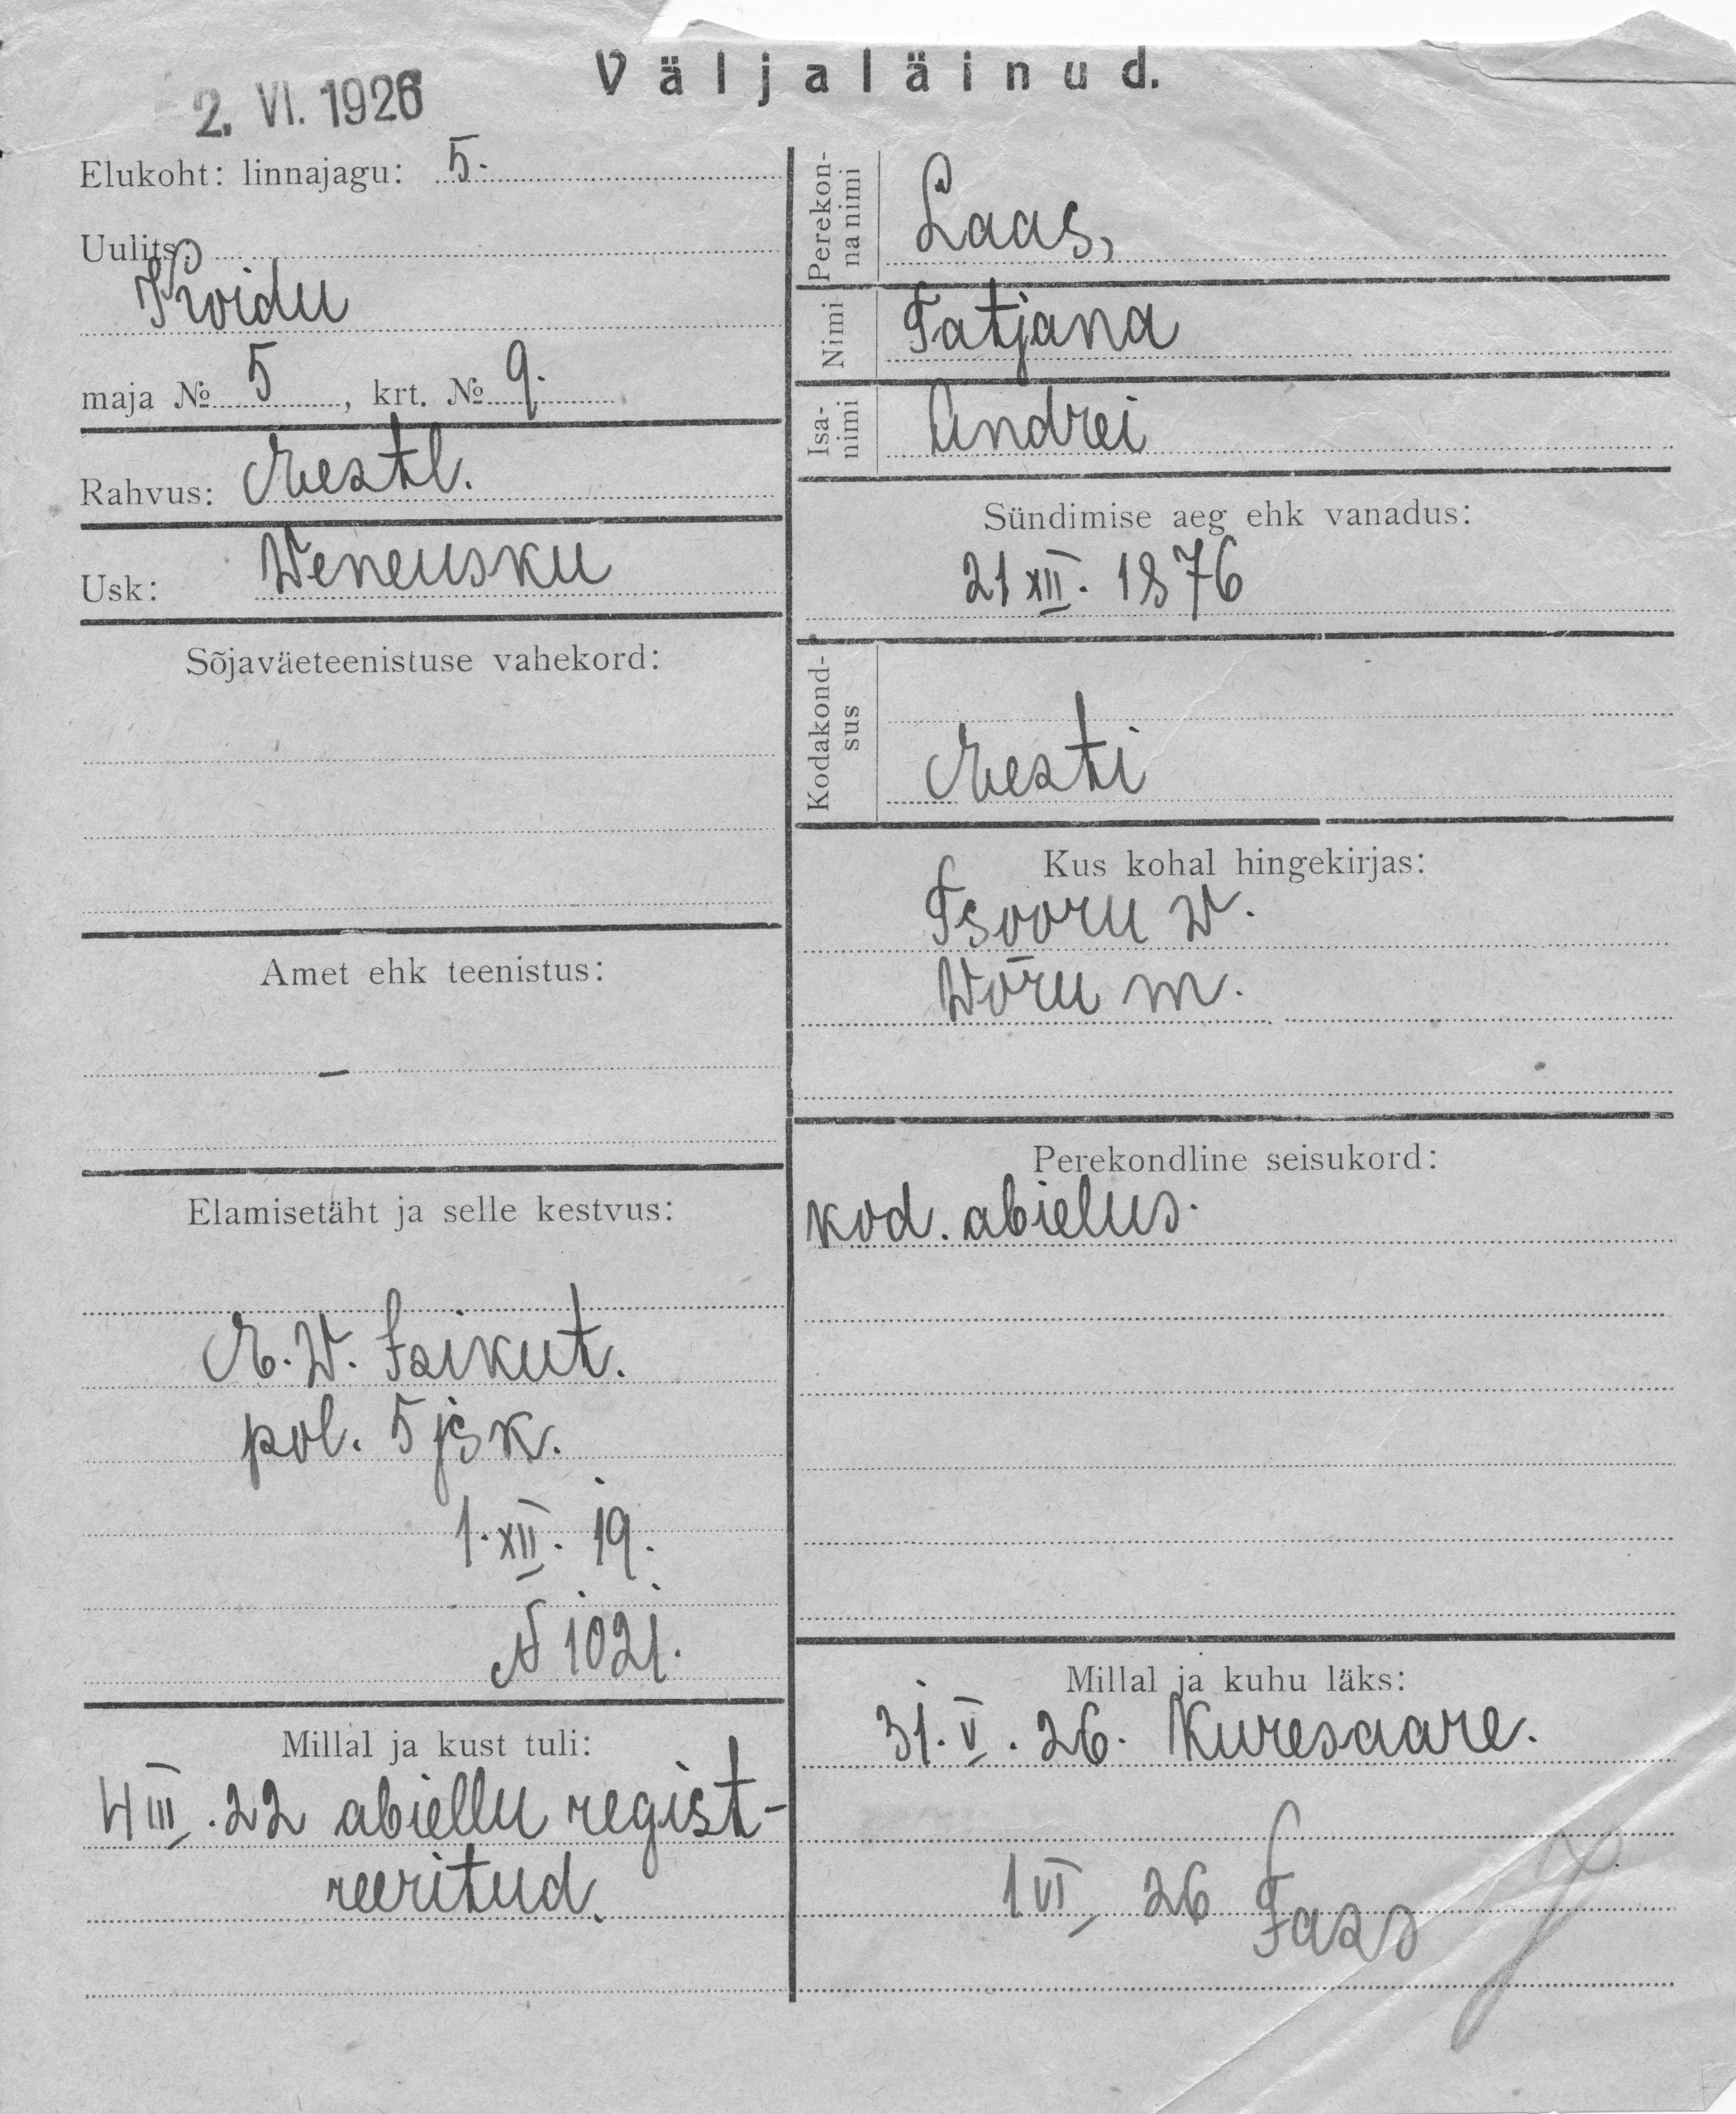 Väljaläinud.
2. VI. 1926
Elukoht: linnajagu: 5.
Uulits:
Koidu
maja № 5, krt. № 9.
Rahvus: Eestl.
Usk: Weneusku
Sõjaväeteenistuse vahekord:
Amet ehk teenistus:
—
Elamisetäht ja selle kestvus:
E. W. Isikut.
pol. 5 jsk.
1. XII. 19.
№ 1021.
Millal ja kust tuli:
4 III. 22 abiellu regist-
reeritud.
Perekon-
na nimi
Laas,
Nimi Tatjana
Isa-
nimi
Andrei
Sündimise aeg ehk vanadus:
21 XII. 1876
Kodakond-
sus
Eesti
Kus kohal hingekirjas:
Tsooru w.
Wõru m.
Perekondline seisukord:
kod. abielus.
Millal ja kuhu läks:
31. V. 26. Kuresaare.
1 VI 26